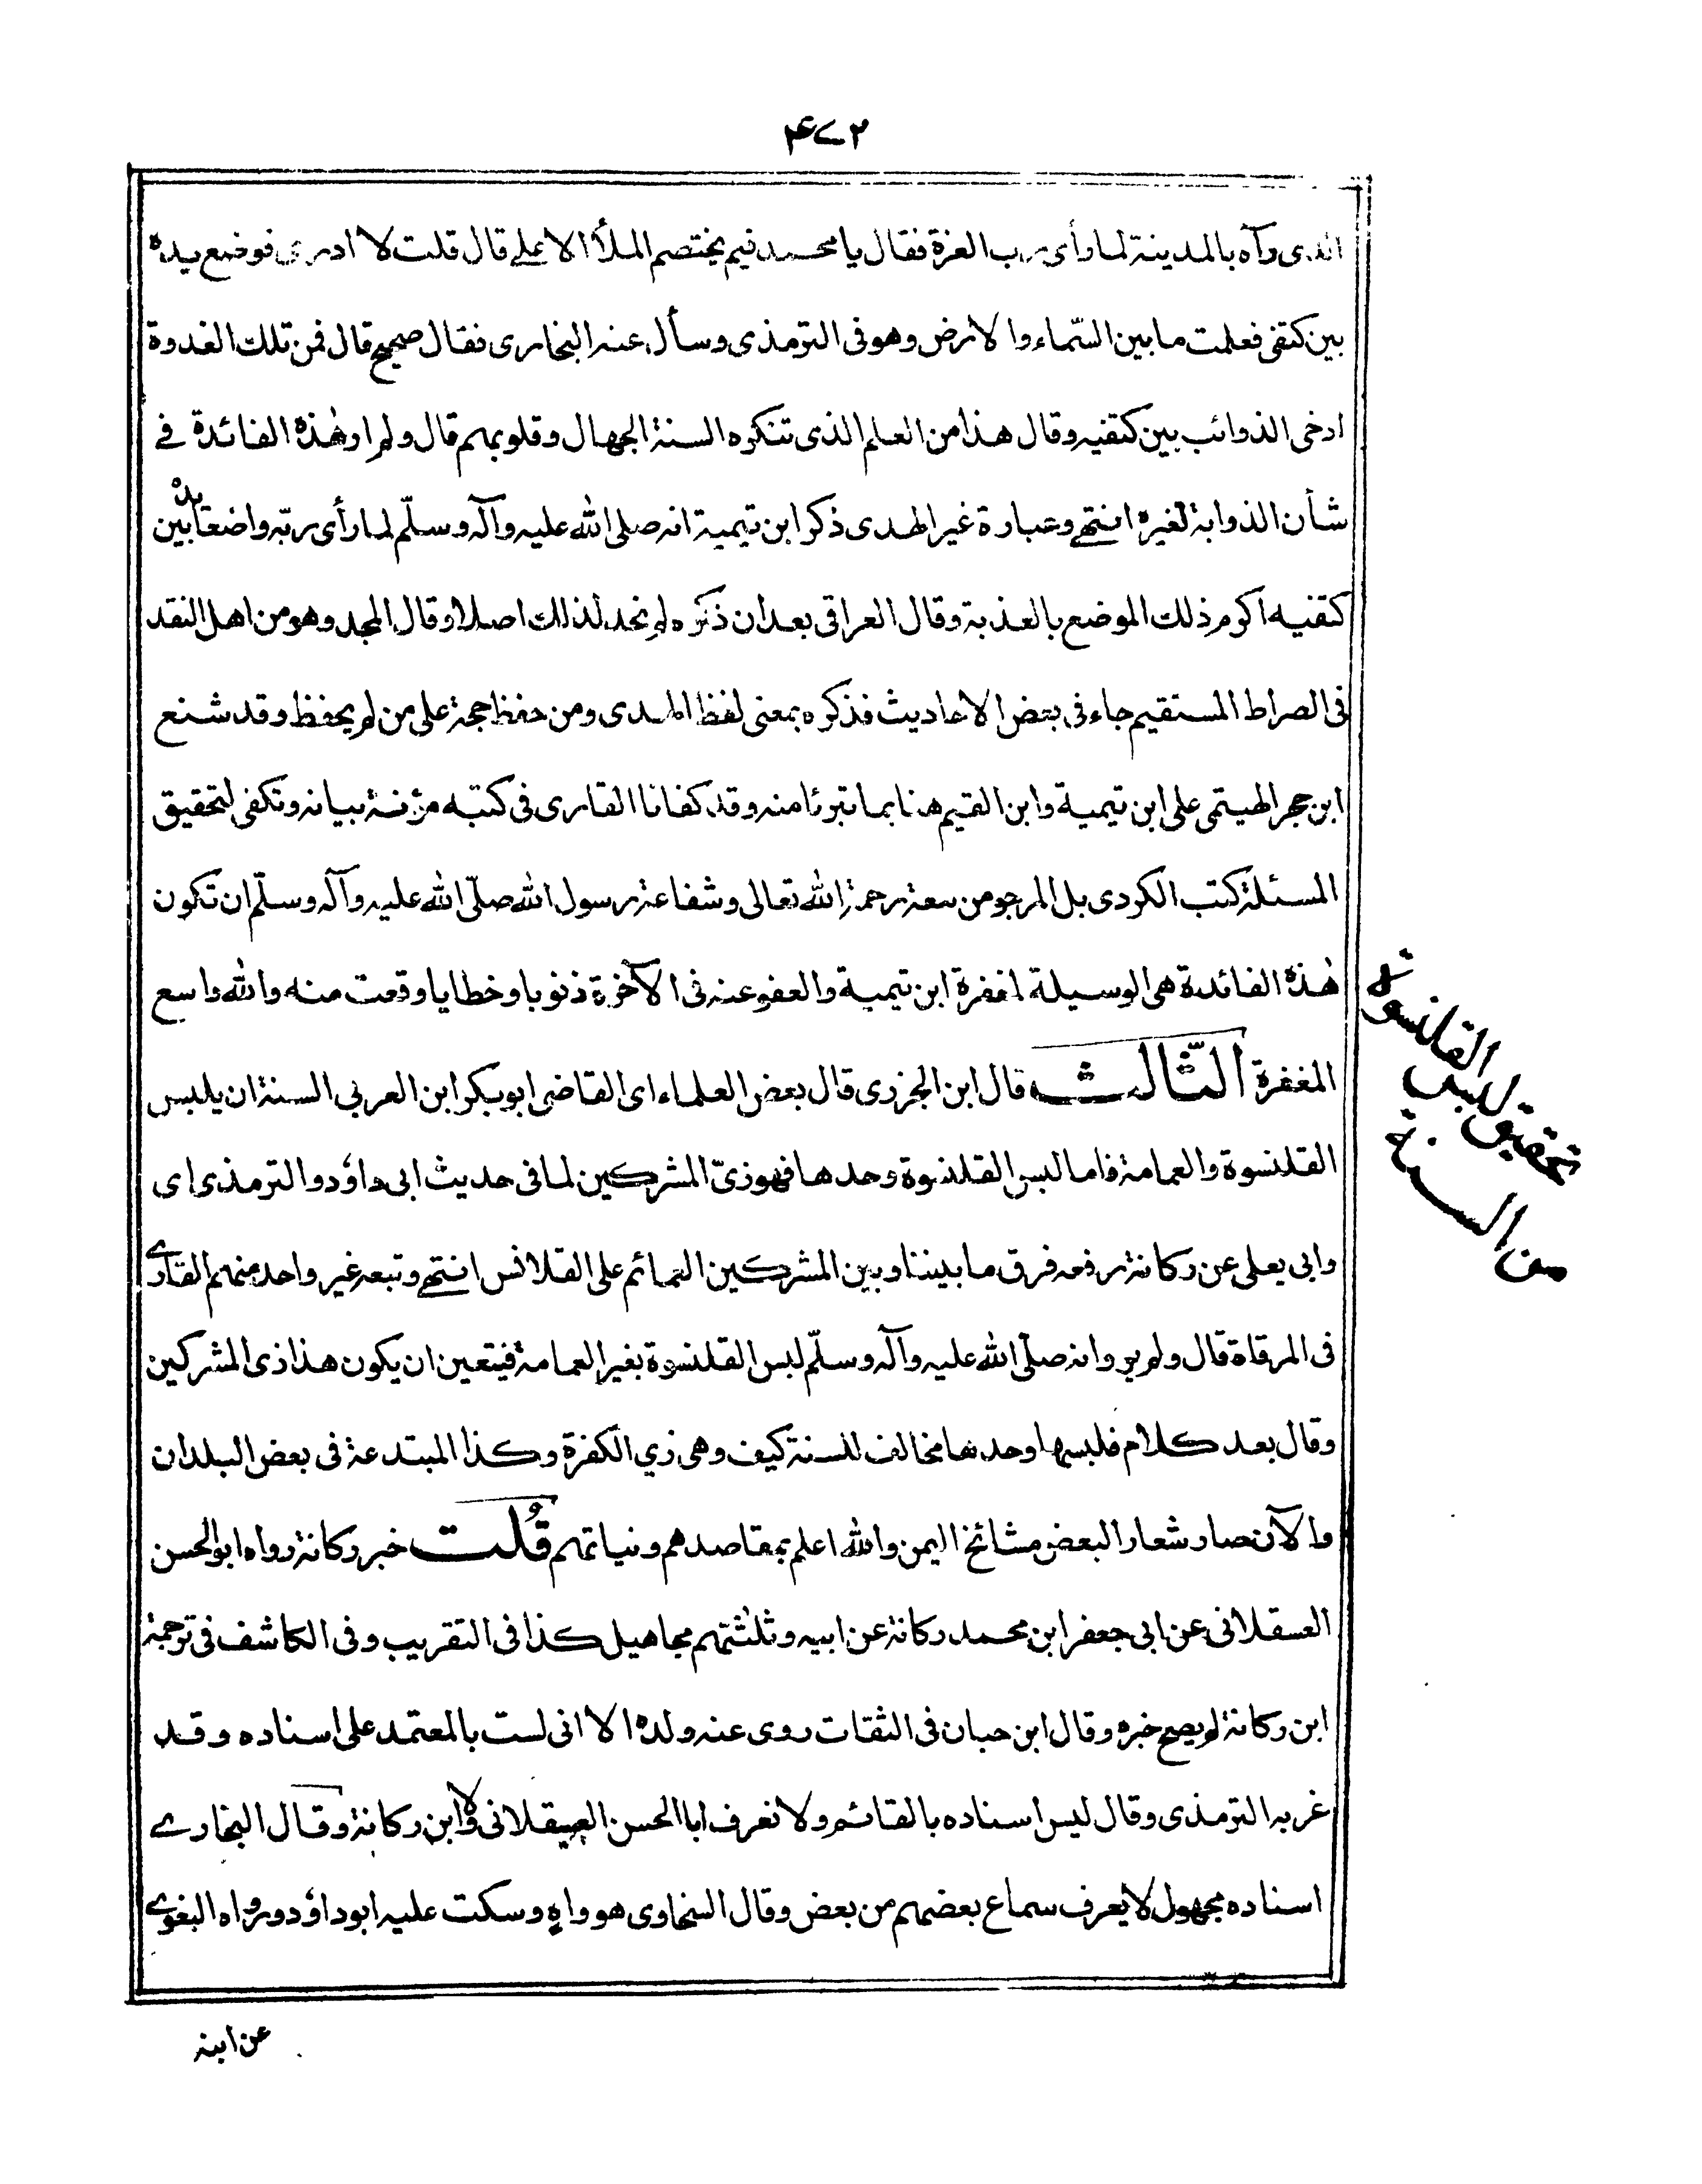 ۴۷۲
الذی رآه بالمدینة لما رأی رب العزة فقال یا محمد فیم یختصم الملأ الاعلے قال قلت لا ادری فوضع یده
بین کتفی فعلمت ما بین السّماء والارض وهو فی الترمذی وسأل عنه البخاری فقال صحیح قال فمن تلك الغدوة
ارخی الذوائب بین کتفیه وقال هذا من العلم الذی تنکره السنة الجهال وقلوبهم قال ولم ار هٰذه الفائدة فے
شأن الذوابة لغیره انتهے وعبارة غیر الهدی ذکر ابن تیمیة انه صلی الله علیه وآله وسلّم لما رأی ربّه واضعا یده بین
کتفیه اکرم ذلك الموضع بالعذبة وقال العراقی بعد ان ذکره لم نجد لذلك اصلا وقال المجد وهو من اهل النقد
فی الصراط المستقیم جاء فی بعض الاحادیث فذکره بمعنی لفظ الهدی ومن حفظ حجة علی من لم یحفظ وقد شنع
ابن حجر الهیتمی علی ابن تیمیة وابن القیم هنا بما تبرئا منه وقد کفانا القاری فی کتبه مؤنة بیانه وتکفی لتحقیق
المسئلة کتب الکردی بل المرجو من سعة رحمة الله تعالی وشفاعة رسول الله صلّی الله علیه وآله وسلّم ان تکون
هٰذه الفائدة هی الوسیلة لمغفرة ابن تیمیة والعفو عنه فی الآخرة ذنوبا وخطایا وقعت منه والله واسع
المغفرة الثّالث قال ابن الجزری قال بعض العلماء ای القاضی ابوبکر ابن العربی السنة ان یلبس
القلنسوة والعمامة فاما لبس القلنسوة وحدها فهو زیّ المشرکین لما فی حدیث ابی داؤد والترمذی ای
وابی یعلی عن رکانة رفعه فرق ما بیننا وبین المشرکین العمائم علی القلانس انتهے وتبعه غیر واحد منهم القارے
فی المرقاة قال ولم یرو انه صلّی الله علیه وآله وسلّم لبس القلنسوة بغیر العمامة فیتعین ان یکون هذا زی المشرکین
وقال بعد کلام فلبسها وحدها مخالف للسنة کیف وهی زي الکفرة وکذا المبتدعة فی بعض البلدان
والآن صار شعار البعض مشائخ الیمن والله اعلم بمقاصدهم ونیاتهم قُلت خبر رکانة رواه ابوالحسن
العسقلانی عن ابی جعفر ابن محمد رکانة عن ابیه وثلٰثتهم مجاهیل کذا فی التقریب وفی الکاشف فی ترجمة
ابن رکانة لم یصح خبره وقال ابن حبان فی الثقات روی عنه ولده الا انی لست بالمعتمد علی اسناده وقد
غربه الترمذی وقال لیس اسناده بالقائم ولا نعرف ابا الحسن العسقلانی ولا ابن رکانة وقال البخارے
اسناده مجهول لا یعرف سماع بعضهم من بعض وقال السخاوی هو واهٍ وسکت علیه ابو داؤد ورواه البغوے
تحقیق لبس القلنسوة
من السنة
عن ابنه